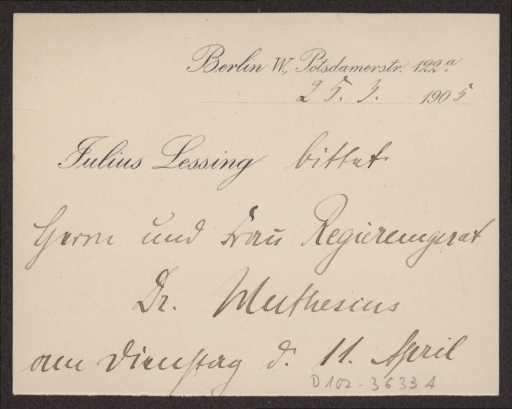 Berlin W., Potsdamerstr. 122a.
25. 3. 1905
Julius Lessing bittet
Herrn und Frau Regierungsrat
Dr. Muthesius
am Dienstag d. 11. April
D 102-3633 A